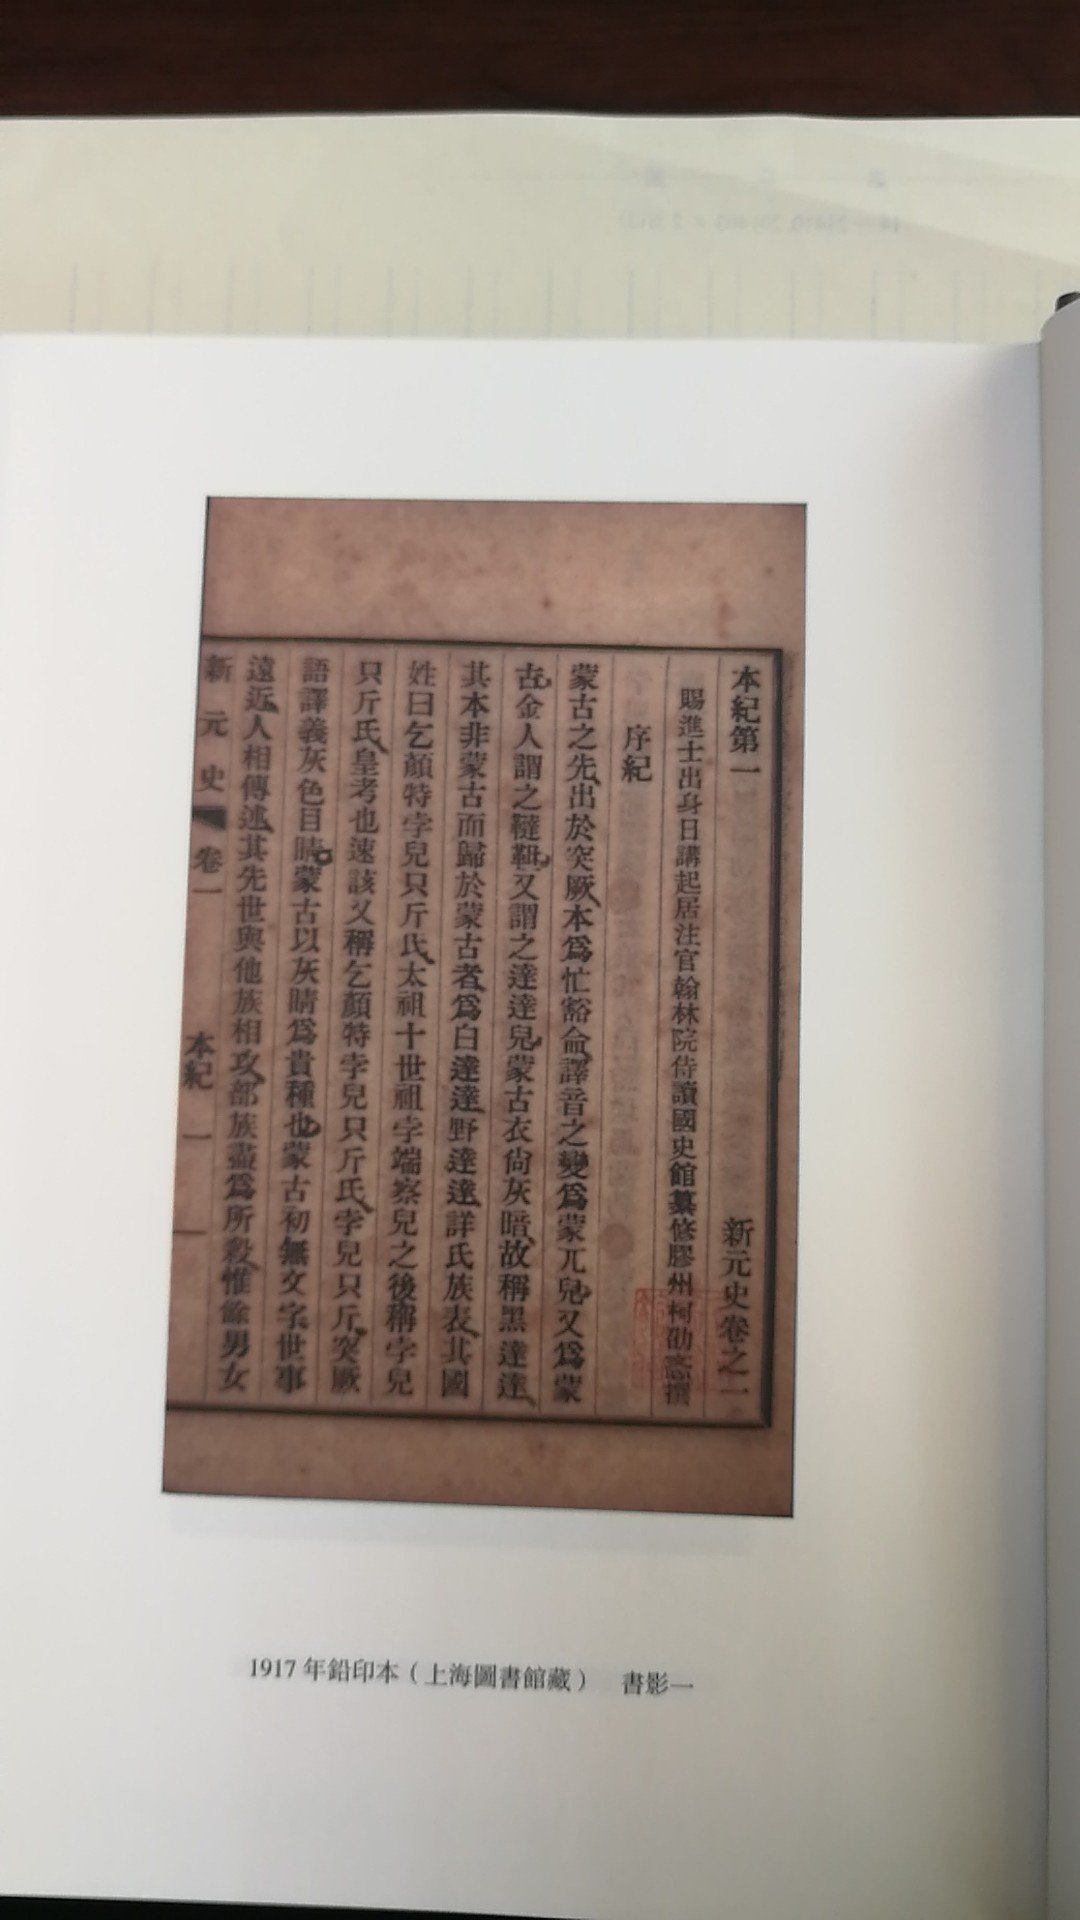 本紀第一　新元史卷之一
賜進士出身日講起居注官翰林院侍讀國史館纂修膠州柯劭忞撰
序紀
蒙古之先出於突厥本爲忙豁侖譯音之變爲蒙兀兒又爲蒙
古金人謂之韃靼又謂之達達兒蒙古衣尙灰暗故稱黑達達
其本非蒙古而歸於蒙古者爲白達達野達達詳氏族表其國
姓曰乞顏特孛兒只斤氏太祖十世祖孛端察兒之後稱孛兒
只斤氏皇考也速該又稱乞顏特孛兒只斤氏孛兒只斤突厥
語譯義灰色目睛蒙古以灰睛爲貴種也蒙古初無文字世事
遠近人相傳述其先世與他族相攻部族盡爲所殺惟餘男女
新元史　卷一　本紀一　一
1917年鉛印本（上海圖書館藏）　書影一